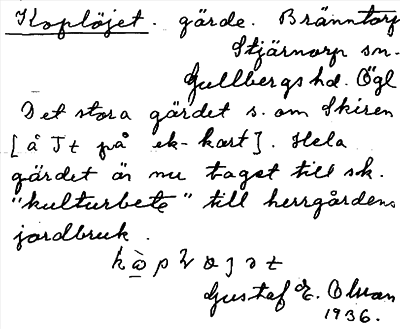 Koplöjet. gärde. Bränntorp
Stjärnorp sn.
Gullbergs hd. Ögl
Det stora gärdet s. om Skiren
[å Jt på ek-kart]. Hela
gärdet är nu taget till sk.
"kulturbete" till herrgårdens
jordbruk.
Gustaf E. Olsson
1936.